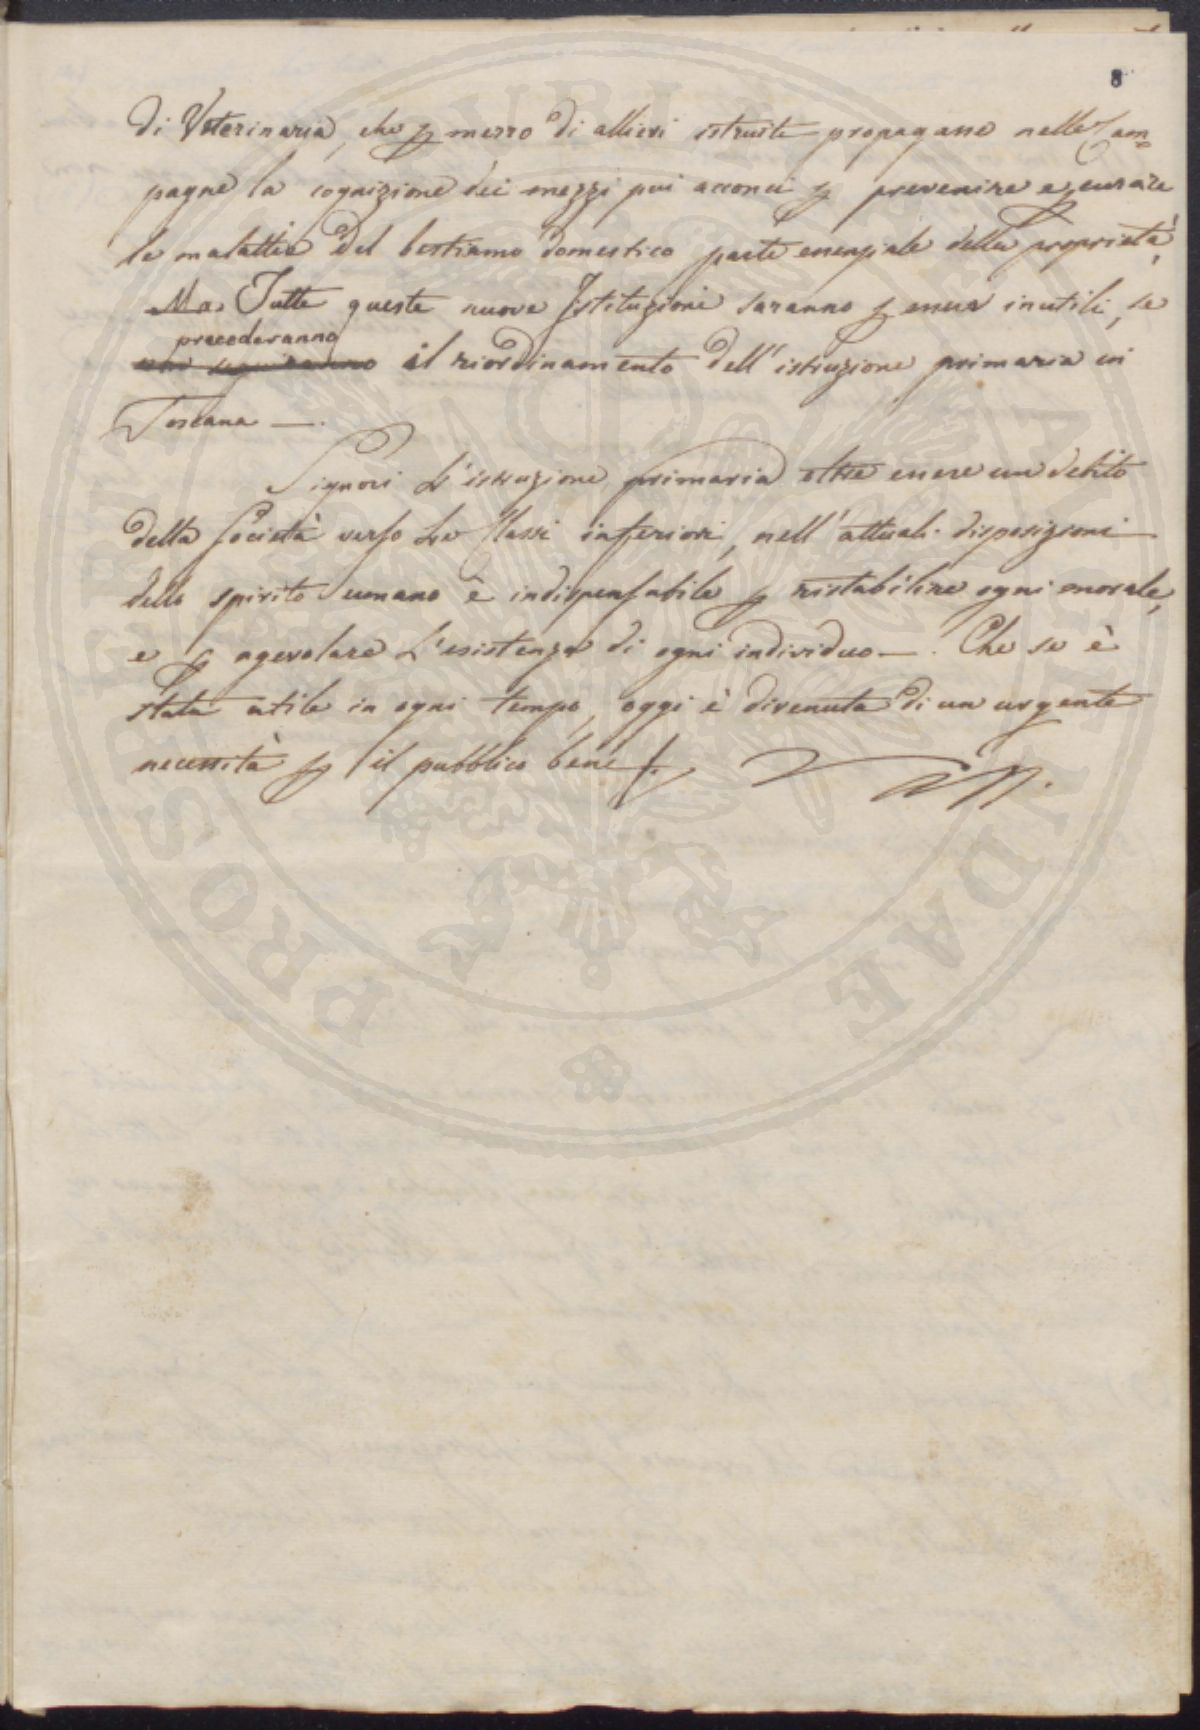 8
di Veterinaria, che p mezzo di allievi istruiti propagasse nelle Cam=
pagne la cognizione dei mezzi più acconci p prevenire e curare
le malattie del bestiame domestico parte essenziale della proprietà,
Ma Tutte queste nuove Istituzioni saranno p esser inutili, se
precederanno
non seguiranno il riordinamento dell'istruzione primaria in
Toscana —.
Signori L'istruzione primaria oltre essere un debito
della Società verso Le Classi inferiori, nell'attuali disposizioni
dello spirito umano è indispensabile p ristabilire ogni morale,
e p agevolare L'esistenza di ogni individuo —. Che se è
stata utile in ogni tempo, oggi è divenuta di un urgente
necessità p il pubblico bene.
PROSPERITATI PUBLICAE AUGENDAE